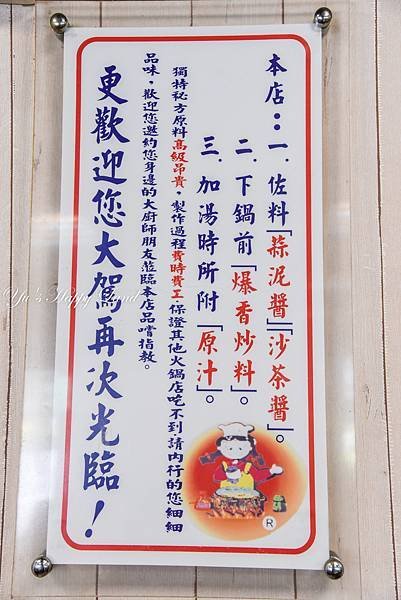 本店：一.佐料「蒜泥醬」「沙茶醬」。
二.下鍋前「爆香炒料」。
三.加湯時所附「原汁」。
獨特秘方原料高級昂貴，製作過程費時費工，保證其他火鍋店吃不到，請內行的您細細
品味，歡迎您邀約您身邊的大廚師朋友蒞臨本店品嚐指教。
更歡迎您大駕再次光臨！
®
Yu's Happy Land